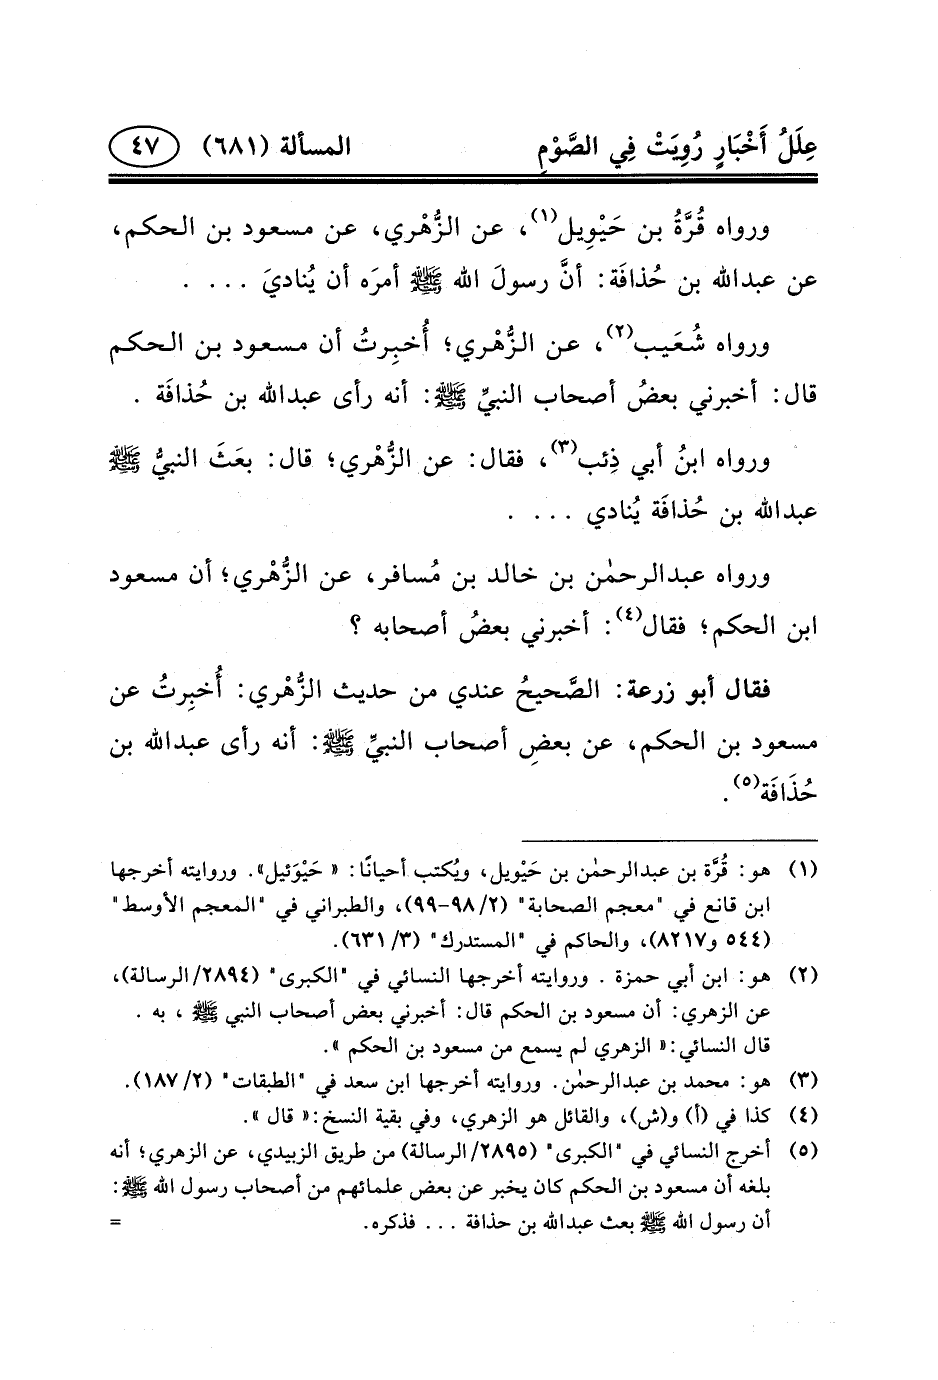 عِلَلُ أَخْبَارٍ رُوِيَتْ فِي الصَّوْمِ المسألة (٦٨١) ٤٧
ورواه قُرَّةُ بن حَيْوِيل(١)، عن الزُّهْري، عن مسعود بن الحكم،
عن عبدالله بن حُذافَة: أنَّ رسولَ الله ﷺ أمرَه أن يُناديَ ... .
ورواه شُعَيب(٢)، عن الزُّهْري؛ أُخبِرتُ أن مسعود بن الحكم
قال: أخبرني بعضُ أصحاب النبيِّ ﷺ: أنه رأى عبدالله بن حُذافَة .
ورواه ابنُ أبي ذِئب(٣)، فقال: عن الزُّهْري؛ قال: بعَثَ النبيُّ ﷺ
عبدالله بن حُذافَة يُنادي ... .
ورواه عبدالرحمٰن بن خالد بن مُسافر، عن الزُّهْري؛ أن مسعود
ابن الحكم؛ فقال(٤): أخبرني بعضُ أصحابه ؟
فقال أبو زرعة: الصَّحيحُ عندي من حديث الزُّهْري: أُخبِرتُ عن
مسعود بن الحكم، عن بعضِ أصحاب النبيِّ ﷺ: أنه رأى عبدالله بن
حُذَافَة(٥).
(١) هو: قُرَّة بن عبدالرحمٰن بن حَيْويل، ويُكتب أحيانًا: « حَيْوَئيل». وروايته أخرجها
ابن قانع في "معجم الصحابة" (٢/ ٩٨-٩٩)، والطبراني في "المعجم الأوسط"
(٥٤٤ و٨٢١٧)، والحاكم في "المستدرك" (٣/ ٦٣١).
(٢) هو: ابن أبي حمزة . وروايته أخرجها النسائي في "الكبرى" (٢٨٩٤/الرسالة)،
عن الزهري: أن مسعود بن الحكم قال: أخبرني بعض أصحاب النبي ﷺ ، به .
قال النسائي:« الزهري لم يسمع من مسعود بن الحكم ».
(٣) هو: محمد بن عبدالرحمٰن. وروايته أخرجها ابن سعد في "الطبقات" (٢/ ١٨٧).
(٤) كذا في (أ) و(ش)، والقائل هو الزهري، وفي بقية النسخ:« قال ».
(٥) أخرج النسائي في "الكبرى" (٢٨٩٥/الرسالة) من طريق الزبيدي، عن الزهري؛ أنه
بلغه أن مسعود بن الحكم كان يخبر عن بعض علمائهم من أصحاب رسول الله ﷺ:
أن رسول الله ﷺ بعث عبدالله بن حذافة ... فذكره. =